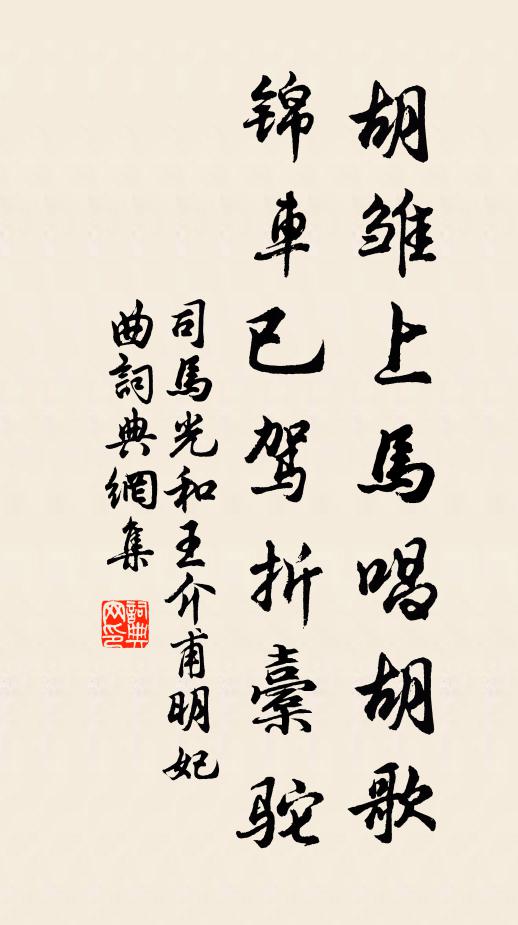 胡雏上馬唱胡歌
锦車已驾折橐驼
司馬光和王介甫明妃
曲詞典網集
詞典
网印